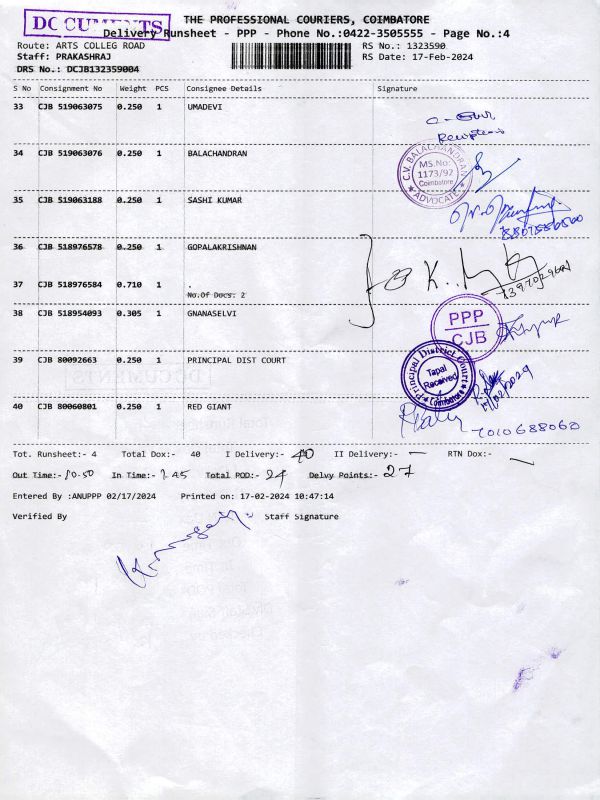 DOCUMENTS
THE PROFESSIONAL COURIERS, COIMBATORE
Delivery Runsheet - PPP - Phone No.:0422-3505555 - Page No.:4
Route: ARTS COLLEG ROAD RS No.: 1323590
Staff: PRAKASHRAJ RS Date: 17-Feb-2024
DRS No.: DCJB132359004
S No Consignment No Weight PCS Consignee Details Signature
33 CJB 519063075 0.250 1 UMADEVI
34 CJB 519063076 0.250 1 BALACHANDRAN
C.V. BALACHANDRAN
MS.No:
1173/92
Coimbatore
ADVOCATE
35 CJB 519063188 0.250 1 SASHI KUMAR
36 CJB 518976578 0.250 1 GOPALAKRISHNAN
37 CJB 518976584 0.710 1 .
No.Of Docs: 2
38 CJB 518954093 0.305 1 GNANASELVI
PPP
CJB
39 CJB 80092663 0.250 1 PRINCIPAL DIST COURT
Principal District Court
Tapal
Received
Coimbatore
40 CJB 80060801 0.250 1 RED GIANT
7010688060
Tot. Runsheet:- 4 Total Dox:- 40 I Delivery:- 40 II Delivery:- — RTN Dox:- —
Out Time:- 10.50 In Time:- 2.45 Total POD:- 24 Delvy Points:- 27
Entered By :ANUPPP 02/17/2024 Printed on: 17-02-2024 10:47:14
Verified By Staff Signature